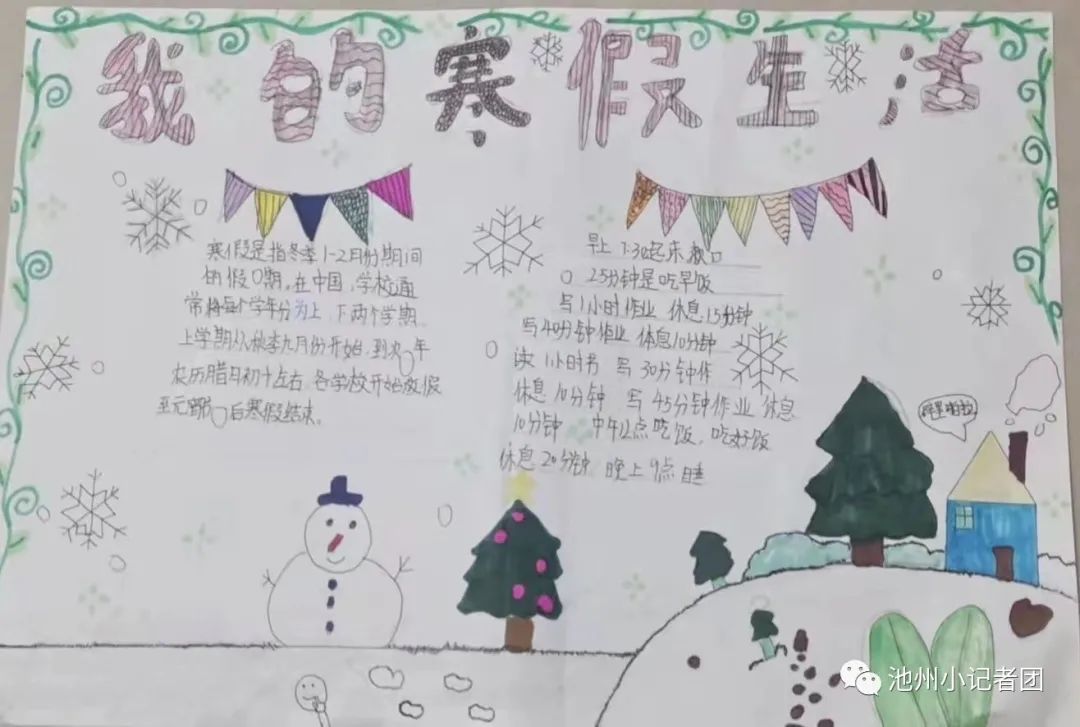 我的寒假生活
寒假是指冬季1-2月份期间
的假期。在中国,学校通
常将每个学年分为上、下两个学期
上学期从秋季九月份开始,到农年
农历腊月初十左右,各学校开始放假
至元宵后寒假结束。
早上 7:30起床漱口
25分钟是吃早饭
写1小时作业 休息15分钟
写40分钟作业 休息10分钟
读1小时书 写30分钟作
休息10分钟 写45分钟作业 休息
10分钟 中午12点吃饭,吃好饭
休息20分钟 晚上9点睡
池州小记者团